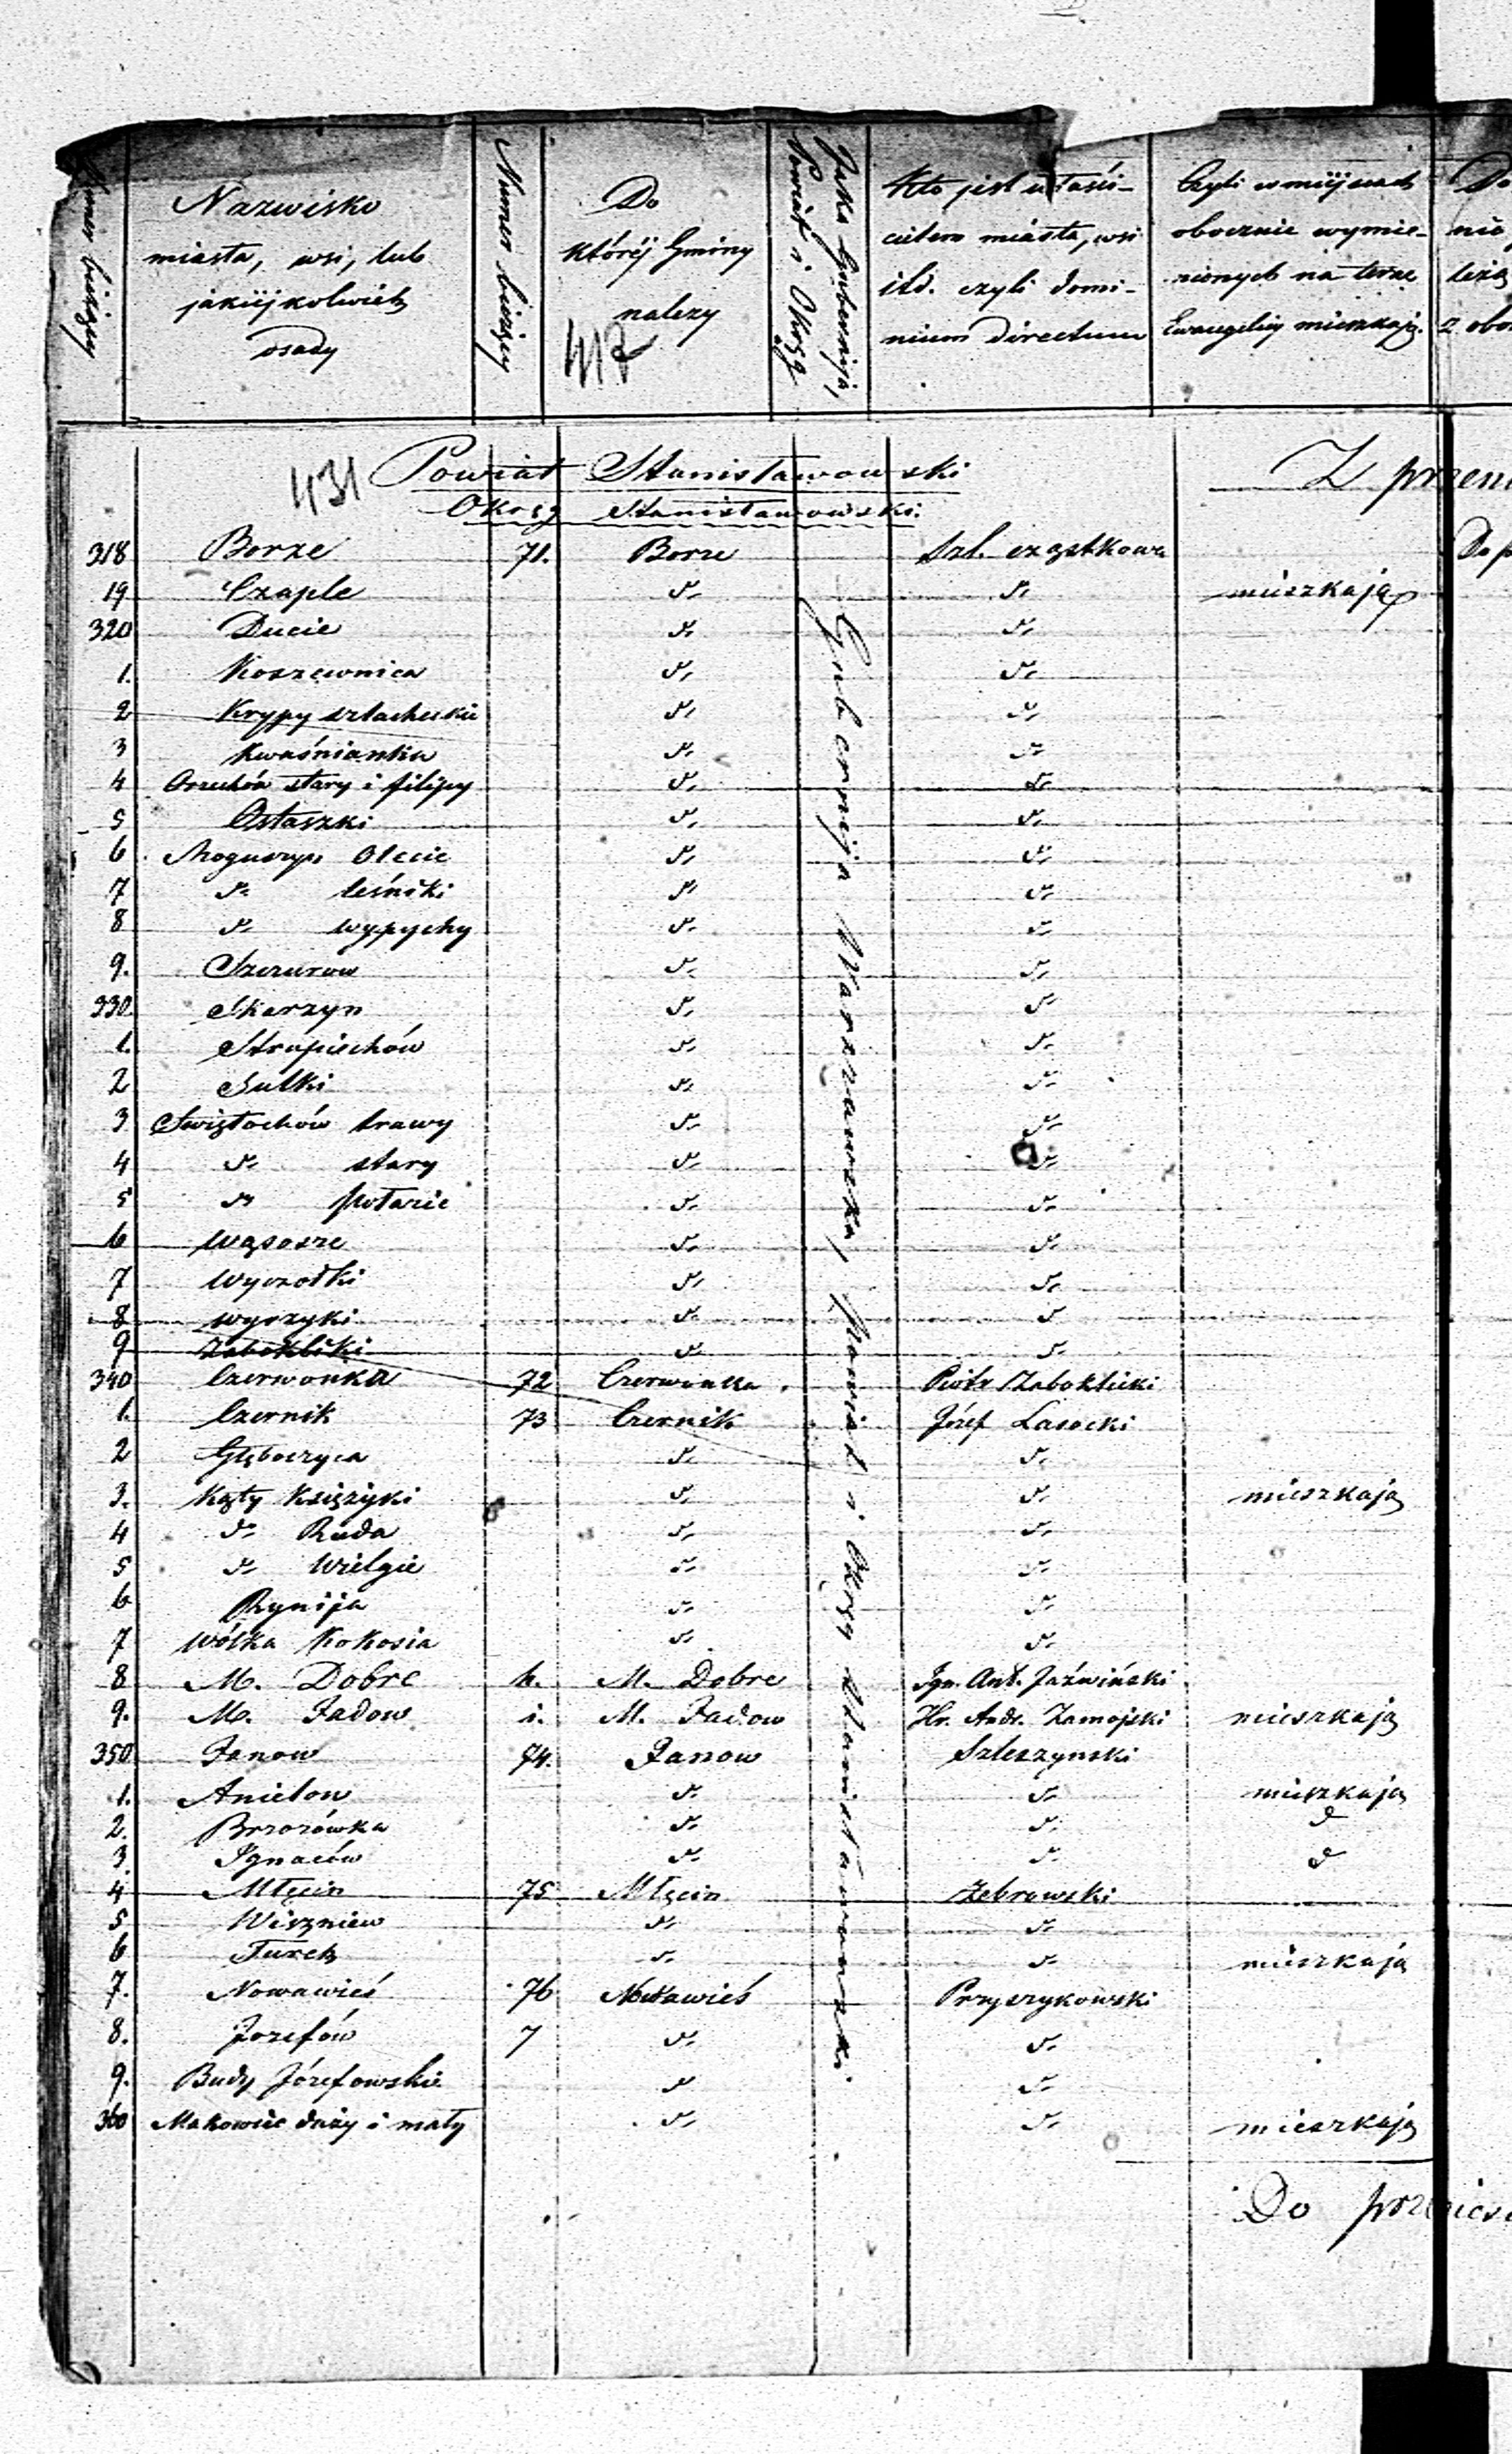 Numer bieżący
Nazwisko
miasta, wsi, lub
jakiéjkolwiek
osady
Numer bieżący
Do
któréj Gminy
należy
417
Jaka Gubernija,
Powiat i Okręg
Kto jest właści-
cielem miasta, wsi
itd. czyli domi-
nium directum
Czyli w miéjscach
obocznie wymie-
nionych na teraz
Ewangelicy mieszkają.
Do
nio
leżą
z obo
431 Powiat Stanisławowski Z przeni
Okręg Stanisławowski.
318 Borze 71. Borze Szl. cząstkowa Do p
19 Czaple d° d° mieszkają
320 Ducie d° d°
1. Koszewnica d° d°
2 Krypy szlacheckie d° d°
3 Kwaśnianka d° d°
4 Orzechów stary i filipy d° d°
5 Ostaszki d° d°
6 Roguszyn Olecie d° d°
7 d° leśniki d° d°
8 d° wypychy d° d°
9. Szczurow d° d°
330 Skarzyn d° d°
1. Strupiechów d° d°
2 Sulki d° d°
3 Świętochów trawy d° d°
4 d° stary d° d°
5 d° połazie d° d°
6 Wąsosze d° d°
7 Wyczołki d° d°
8 Wyrzyki d° d°
9 Zabokliki d° d°
340 Czerwonka 72 Czerwonka Piotr Zaboklicki
1. Czernik 73 Czernik Józef Lasocki
2 Głęboczyca d° d°
3. Kąty Księżyki d° d° mieszkają
4 d° Ruda d° d°
5 d° Wielgie d° d°
6 Rynija d° d°
7 Wólka Kokosia d° d°
8 M. Dobre h. M. Dobre Ign. Ant. Jaźwiński
9. M. Jadow i. M. Jadow Hr. Andr. Zamojski mieszkają
350 Janow 74. Janow Szleszynski
1. Anielow d° d° mieszkają
2. Brzozówka d° d° d
3. Ignaców d° d° d
4 Mlęcin 75 Mlęcin Zebrowski
5 Wiszniew d° d°
6 Turek d° d° mieszkają
7. Nowawieś 76 Nowawieś Przyszykowski
8. Jozefów 7 d° d°
9. Budy Józefowskie d° d°
360 Makowiec duży i mały d° d° mieszkają
Gubernija Warszawska, Powiat i Okręg Stanisławowski.
Do przeniesi